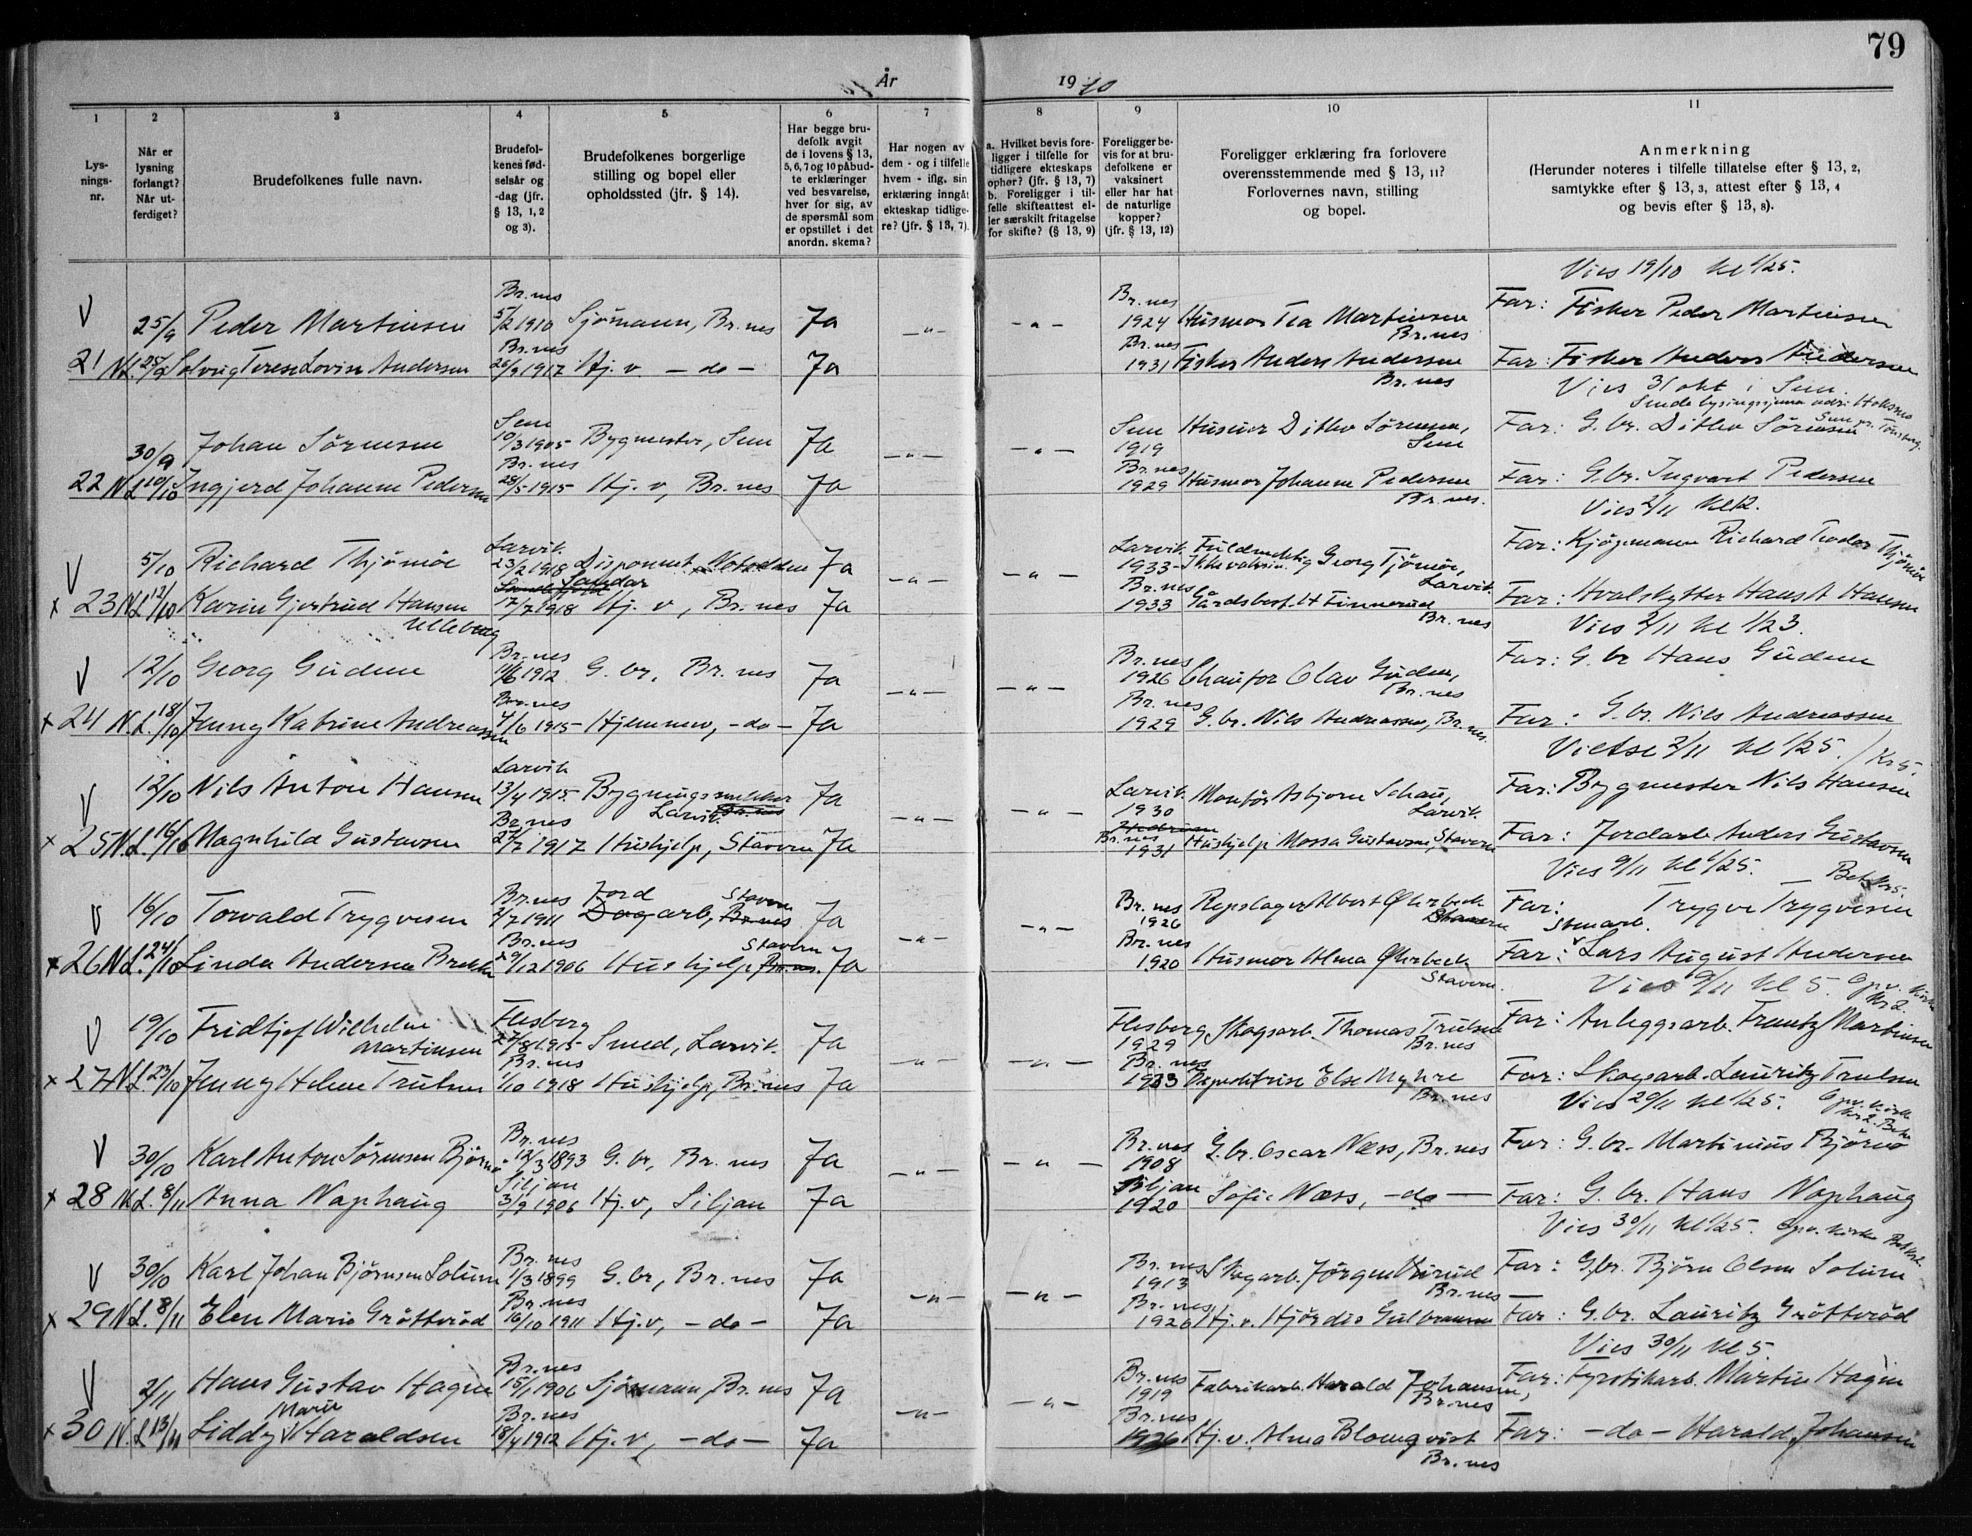 79
År 1940
1 2 3 4 5 6 7 8 9 10 11
Lys-
nings-
nr.
Når er
lysning
forlangt?
Når ut-
ferdiget?
Brudefolkenes fulle navn.
Brudefol-
kenes fød-
selsår og
-dag (jfr.
§ 13, 1, 2
og 3).
Brudefolkenes borgerlige
stilling og bopel eller
opholdssted (jfr. § 14).
Har begge bru-
defolk avgit
de i lovens § 13,
5, 6, 7 og 10 påbud-
te erklæringer
ved besvarelse,
hver for sig, av
de spørsmål som
er opstillet i det
anordn. skema?
Har nogen av
dem - og i tilfelle
hvem - iflg. sin
erklæring inngått
ekteskap tidlige-
re? (jfr. § 13, 7).
a. Hvilket bevis fore-
ligger i tilfelle for
tidligere ekteskaps
ophør? (jfr. § 13, 7)
b. Foreligger i til-
felle skifteattest el-
ler særskilt fritagelse
for skifte? (§ 13, 9)
Foreligger be-
vis for at bru-
defolkene er
vaksinert
eller har hat
de naturlige
kopper?
(jfr. § 13, 12)
Foreligger erklæring fra forlovere
overensstemmende med § 13, 11?
Forlovernes navn, stilling
og bopel.
Anmerkning
(Herunder noteres i tilfelle tillatelse efter § 13, 2,
samtykke efter § 13, 3, attest efter § 13, 4
og bevis efter § 13, 8).
Vies 19/10 kl 1/25.
V 25/9 Peder Martinsen Br.nes 5/2 1910 Sjömann, Br.nes Ja -"- -"- Br.nes 1924 Husmor Tea Martinsen Br.nes Far: Fisker Peder Martinsen
21 N.L. 25/9 Solveig Terese Lovise Andersen Br.nes 26/9 1917 Hj.v. -do- Ja Br.nes 1931 Fisker Anders Andersen Br.nes Far: Fisker Anders Andersen
Vies 31 okt i Sem.
30/9 Johan Sørensen Sem 10/3 1905 Bygmester, Sem Ja -"- -"- Sem 1919 Husmor Ditlev Sørensen, Sem Far: G.br. Ditlev Sørensen
22 N.L. 10/10 Ingjerd Johanne Pedersen Br.nes 28/5 1915 Hj.v, Br.nes Ja Br.nes 1929 Husmor Johanne Pedersen Br.nes. Far: G.br. Ingvart Pedersen
Vies 2/11 kl 2.
V 5/10 Richard Thjömöe Larvik 23/2 1918 Disponent, Notodden Ja -"- -"- Larvik 1933 Fuldmektig Georg Tjömöe, Larvik. Far: Kjøpmann Richard Teodor Thjömöe
x 23 N.L. 12/10 Karin Gjertrud Hansen Ulleberg Sandar 17/7 1918 Hj.v, Br.nes Ja Br.nes 1933 Gårdsbest. H Finnerud Br.nes Far: Hvalskytter Hans A Hansen
Vies 2/11 kl 1/23.
V 12/10 Georg Gudem Br.nes 11/6 1912 G.br, Br.nes Ja -"- -"- Br.nes 1926 Chaufør Olav Gudem, Br.nes Far: G.br Hans Gudem
x 24 N.L. 18/10 Jenny Katrine Andreassen Br.nes 4/6 1915 Hjemmev, -do- Ja Br.nes 1929 G.br. Nils Andreassen, Br.nes. Far: G.br. Nils Andreassen
Vielse 2/11 kl 1/25. Kr 5.
V 12/10 Nils Anton Hansen Larvik 13/4 1915 Bygningssnekker Larvik. Br.nes Ja -"- -"- Larvik 1930 Montør Asbjørn Schau, Larvik. Far: Bygmester Nils Hansen
x 25 N.L. 16/10 Magnhild Gustavsen Br.nes 27/7 1917 Hushjelp, Stavern Ja Hedrum Br.nes 1931 Hushjelp Mossa Gustavsen, Stavern Far: Jordarb Anders Gustavsen
Vies 9/11 kl 1/25. Bet Kr 5.
V 16/10 Torvald Trygvesen Br.nes 2/7 1911 Jord Dagarb, Br.nes Stavern Ja -"- -"- Br.nes 1926 Repslager Albert Øhrbeck Stavern Far: Trygve Trygvesen
x 26 N.L. 24/10 Linda Andersen Brekke Br.nes 29/12 1906 Hushjelp Br.nes. Stavern Ja Br.nes 1920 Husmor Alma Øhrbeck Stavern. Far: Stenarb. Lars August Andersen
Vies 9/11 kl 5. Opv. kirke Kr 2
V 19/10 Fridtjof Wilhelm Martinsen Flesberg 27/8 1915 Smed, Larvik. Ja -"- -"- Flesberg 1929 Skogsarb. Thomas Trulsen Br.nes Far: Anleggsarb. Frantz Martinsen
x 27 N.L. 23/10 Jenny Helene Trulsen Br.nes 1/10 1918 Hushjelp, Br.nes Ja Br.nes 1933 Expeditrise Else Myhre Br.nes Far: Skogsarb. Lauritz Trulsen
Vies 20/11 kl 1/25. Opv. kirke Kr 2. Bet
V 30/10 Karl Anton Sørensen Bjørnø Br.nes 12/3 1893 G.br, Br.nes Ja -"- -"- Br.nes 1908 G.br. Oscar Næss, Br.nes Far: G.br. Martinius Bjørnø
x 28 N.L. 8/11 Anna Naphaug Siljan 3/9 1906 Hj.v, Siljan Ja Siljan 1920 Sofie Næss, -do- Far: G.br. Hans Naphaug
Vies 30/11 kl 1/25. Opv. kirke Bet Kr 2.
V 30/10 Karl Johan Björnsen Solum Br.nes 1/3 1899 G.br, Br.nes Ja -"- -"- Br.nes 1913 Skogarb. Jørgen Virud Br.nes Far: G.br. Björn Olsen Solum
x 29 N.L. 8/11 Elen Marie Grötteröd Br.nes 16/10 1911 Hj.v, -do- Ja Br.nes 1926 Hj.v. Hjørdis Gulbransen Far: G.br. Lauritz Grötteröd
Vies 30/11 kl 5.
V 2/11 Hans Gustav Hagen Br.nes 15/1 1906 Sjømann, Br.nes Ja -"- -"- Br.nes 1919 Fabrikarb. Harald Johansen, Br.nes Far: Fyrstikarb. Martin Hagen
x 30 N.L. 13/11 Liddy Marie Haraldsen Br.nes 18/4 1912 Hj.v, -do- Ja Br.nes 1926 Hj.v. Alma Blomqvist Br.nes Far: -do- Harald Johansen